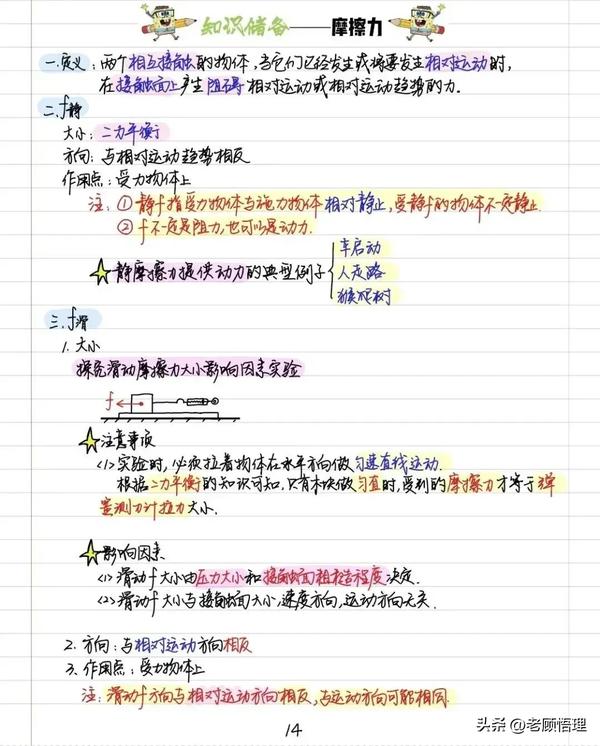 知识储备——摩擦力
一.定义:两个相互接触的物体,当它们已经发生或将要发生相对运动时,
在接触面上产生阻碍相对运动或相对运动趋势的力.
二.f静
大小:二力平衡
方向:与相对运动趋势相反
作用点:受力物体上
注:①静f指受力物体与施力物体相对静止,受静f的物体不一定静止.
②f不一定是阻力,也可以是动力.
静摩擦力提供动力的典型例子
车启动
人走路
猴爬树
三.f滑
1.大小
探究滑动摩擦力大小影响因素实验
f
注意事项
<1>实验时,必须拉着物体在水平方向做匀速直线运动.
根据二力平衡的知识可知,只有木块做匀直时,受到的摩擦力才等于弹
簧测力计拉力大小.
影响因素
<1>滑动f大小由压力大小和接触面粗糙程度决定.
<2>滑动f大小与接触面大小,速度方向,运动方向无关.
2.方向:与相对运动方向相反
3.作用点:受力物体上
注:滑动f方向与相对运动方向相反,与运动方向可能相同.
14
头条 @老顾悟理